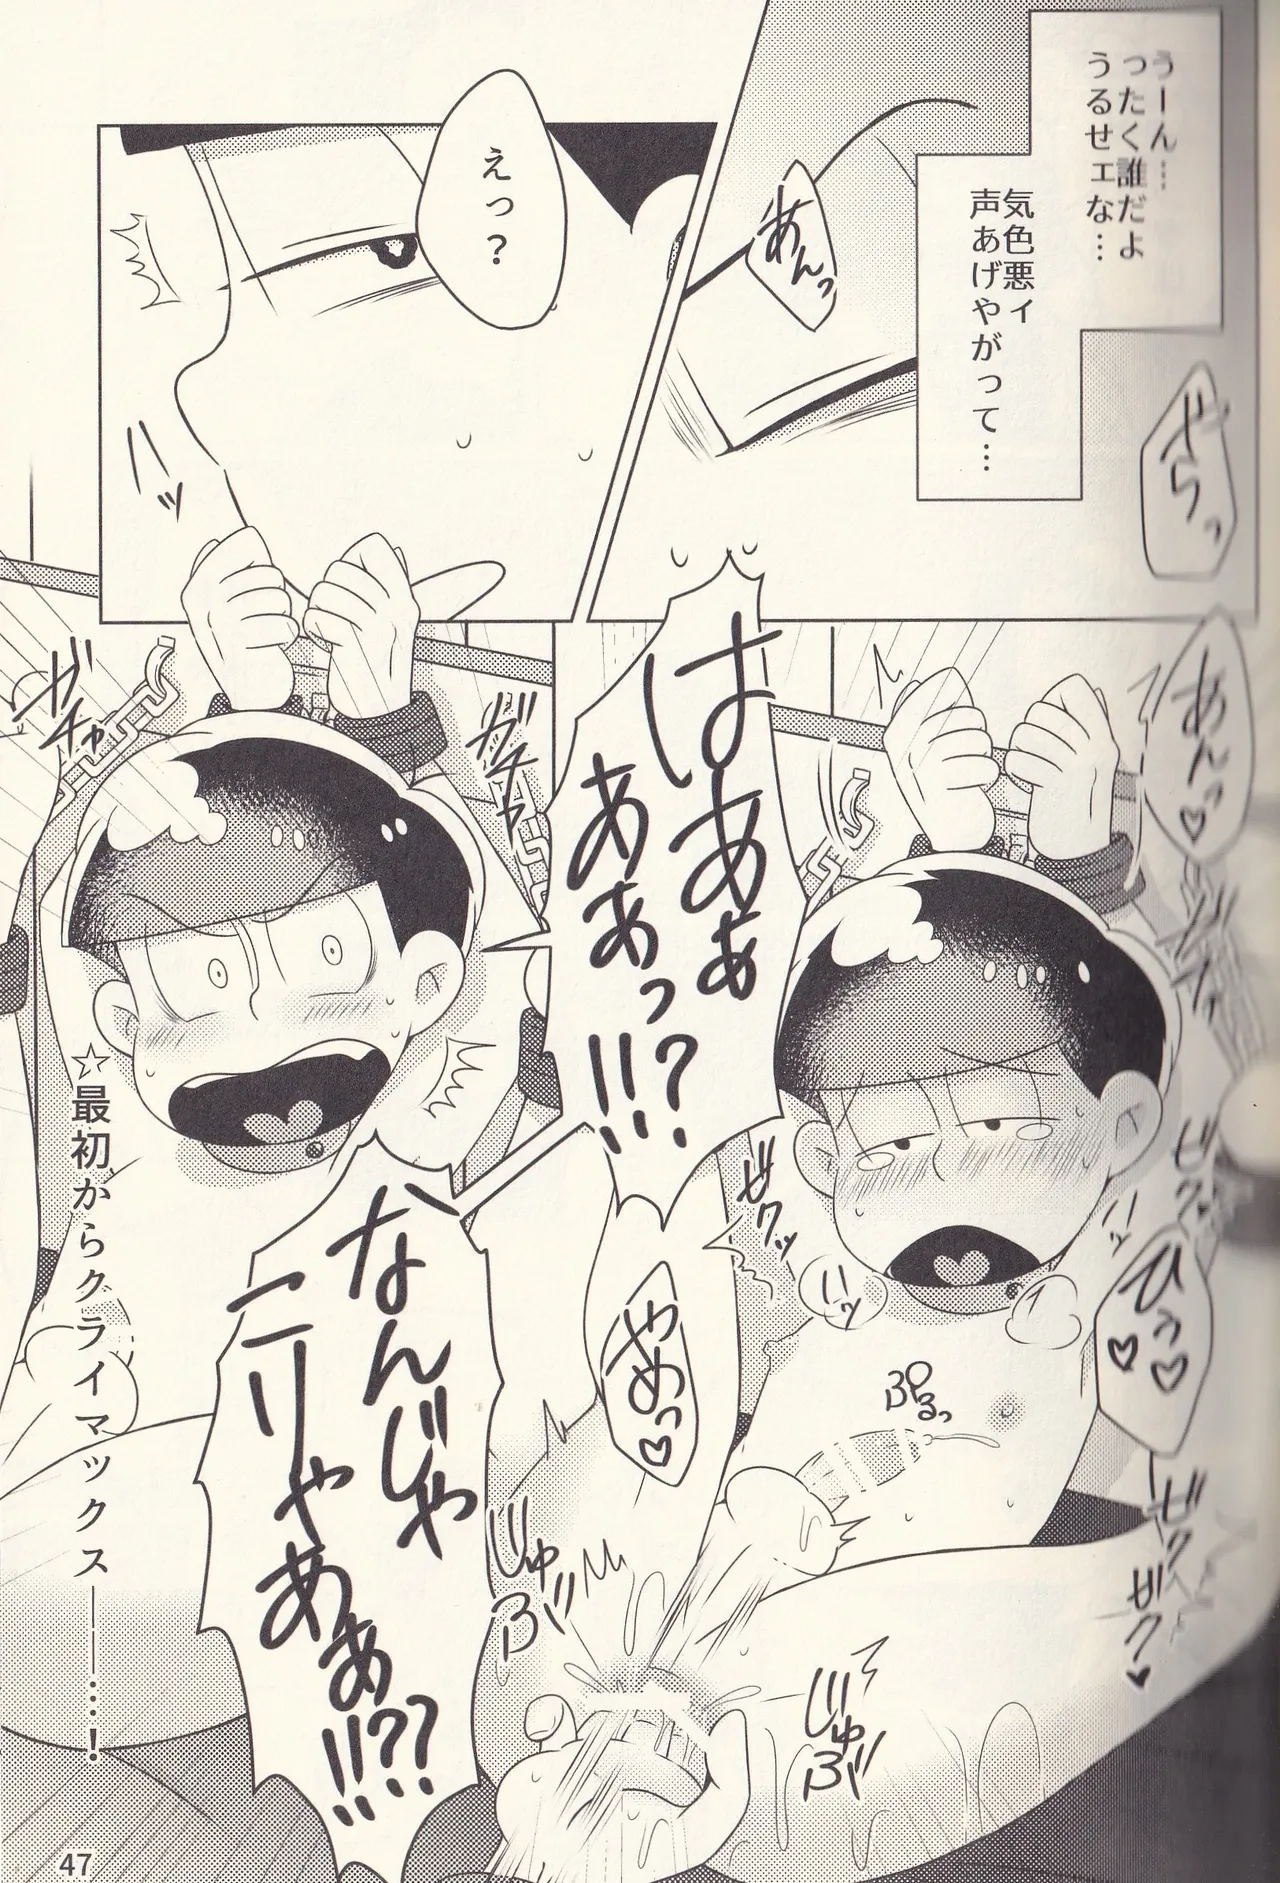 うーん…
ったく誰だよ
うるせェな…
気色悪ィ
声あげやがって…
あんっ
えっ?
やらっ
あんっ♡
はあぁ
あぁあっ
!!!?
ガチャ
ガチャ
ゼクッ
ビク
ひぅ♡♡
ハッ
ハッ
やめっ♡
ぷるっ
ビク♥
じゅぶ
じゅぶ
なんじゃ
こりゃあぁ
!!??
☆最初からクライマックス――…!
47